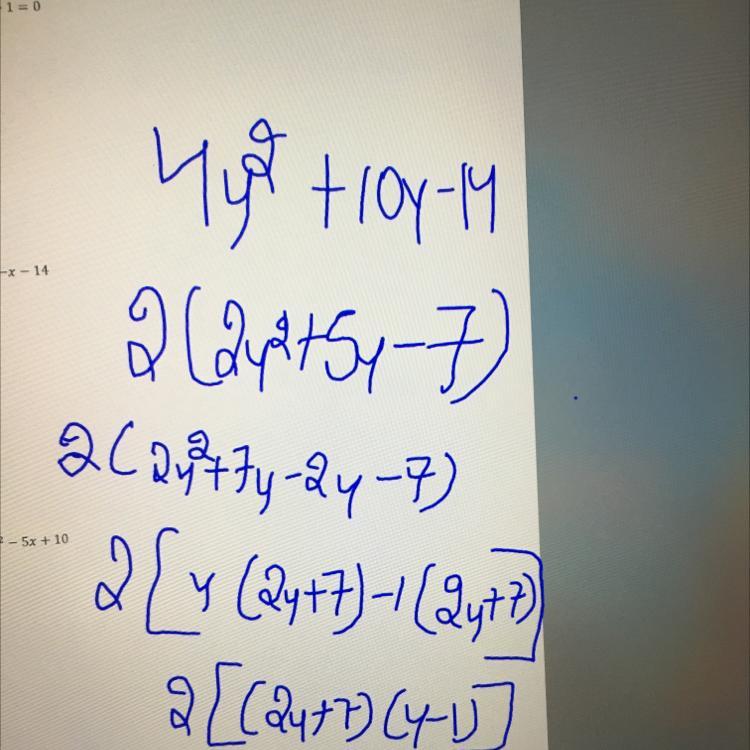 1 = 0
4y² +10y-14
-x - 14
2(2y²+5y-7)
2(2y²+7y-2y-7)
² - 5x + 10
2[y(2y+7)-1(2y+7)]
2[(2y+7)(y-1)]